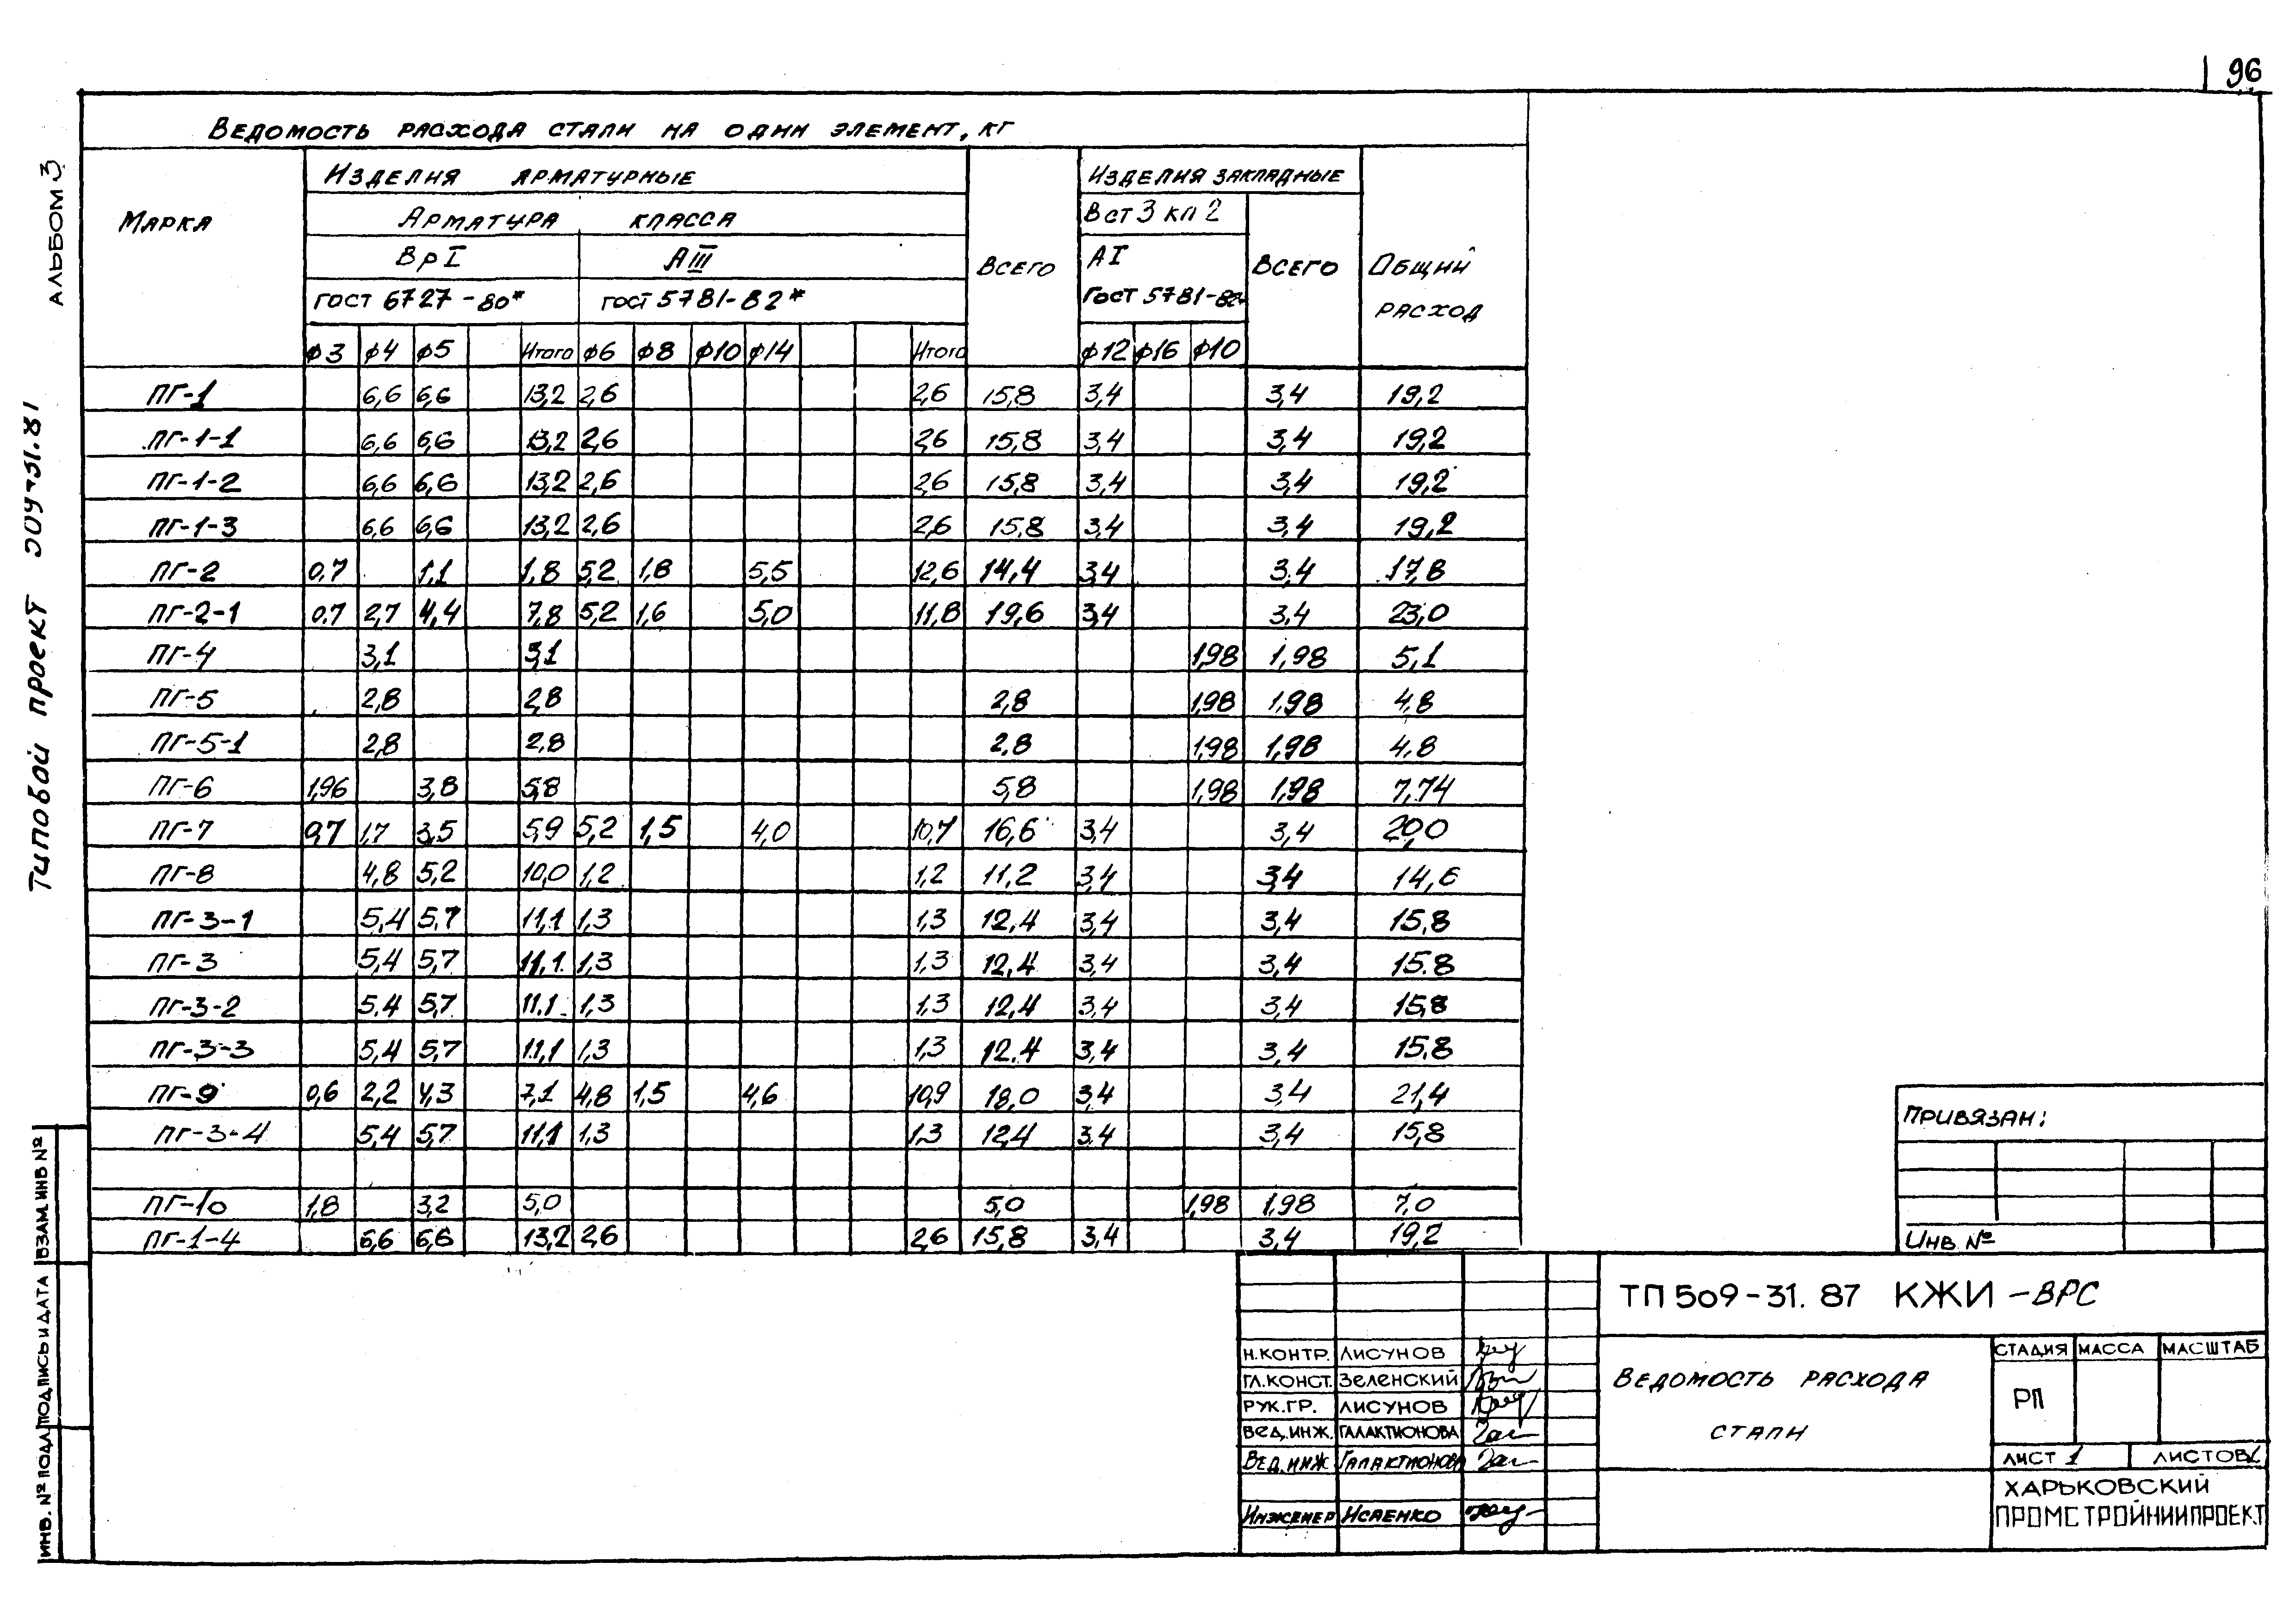 96
Ведомость расхода стали на один элемент, кг
Марка
Изделия арматурные
Арматура класса
Вр I
А III
ГОСТ 6727-80*
ГОСТ 5781-82*
Всего
Изделия закладные
В ст 3 кп 2
А I
ГОСТ 5781-82*
Всего
Общий
расход
ф3 ф4 ф5 Итого ф6 ф8 ф10 ф14 Итого ф12 ф16 ф10
ПГ-1 6,6 6,6 13,2 2,6 2,6 15,8 3,4 3,4 19,2
ПГ-1-1 6,6 6,6 13,2 2,6 2,6 15,8 3,4 3,4 19,2
ПГ-1-2 6,6 6,6 13,2 2,6 2,6 15,8 3,4 3,4 19,2
ПГ-1-3 6,6 6,6 13,2 2,6 2,6 15,8 3,4 3,4 19,2
ПГ-2 0,7 1,1 1,8 5,2 1,8 5,5 12,6 14,4 3,4 3,4 17,8
ПГ-2-1 0,7 2,7 4,4 7,8 5,2 1,6 5,0 11,8 19,6 3,4 3,4 23,0
ПГ-4 3,1 3,1 1,98 1,98 5,1
ПГ-5 2,8 2,8 2,8 1,98 1,98 4,8
ПГ-5-1 2,8 2,8 2,8 1,98 1,98 4,8
ПГ-6 1,96 3,8 5,8 5,8 1,98 1,98 7,74
ПГ-7 0,7 1,7 3,5 5,9 5,2 1,5 4,0 10,7 16,6 3,4 3,4 20,0
ПГ-8 4,8 5,2 10,0 1,2 1,2 11,2 3,4 3,4 14,6
ПГ-3-1 5,4 5,7 11,1 1,3 1,3 12,4 3,4 3,4 15,8
ПГ-3 5,4 5,7 11,1 1,3 1,3 12,4 3,4 3,4 15.8
ПГ-3-2 5,4 5,7 11,1 1,3 1,3 12,4 3,4 3,4 15,8
ПГ-3-3 5,4 5,7 11,1 1,3 1,3 12.4 3,4 3,4 15,8
ПГ-9 0,6 2,2 4,3 7,1 4,8 1,5 4,6 10,9 18,0 3,4 3,4 21,4
ПГ-3-4 5,4 5,7 11,1 1,3 1,3 12,4 3,4 3,4 15,8
ПГ-10 1,8 3,2 5,0 5,0 1,98 1,98 7,0
ПГ-1-4 6,6 6,6 13,2 2,6 2,6 15,8 3,4 3,4 19,2
Альбом 3
Типовой проект
ВЗАМ. ИНВ №
ПОДПИСЬ И ДАТА
ИНВ. № ПОДЛ
Привязан:
Инв №
ТП 509-31. 87 КЖИ -ВРС
Н.КОНТР. ЛИСУНОВ
ГЛ.КОНСТ. ЗЕЛЕНСКИЙ
РУК.ГР. ЛИСУНОВ
ВЕД.ИНЖ. ГАЛАКТИОНОВА
ВЕД.ИНЖ ГАЛАКТИОНОВА
ИНЖЕНЕР ИСАЕНКО
Ведомость расхода
стали
СТАДИЯ МАССА МАСШТАБ
РП
ЛИСТ 1 ЛИСТОВ
ХАРЬКОВСКИЙ
ПРОМСТРОЙНИИПРОЕКТ